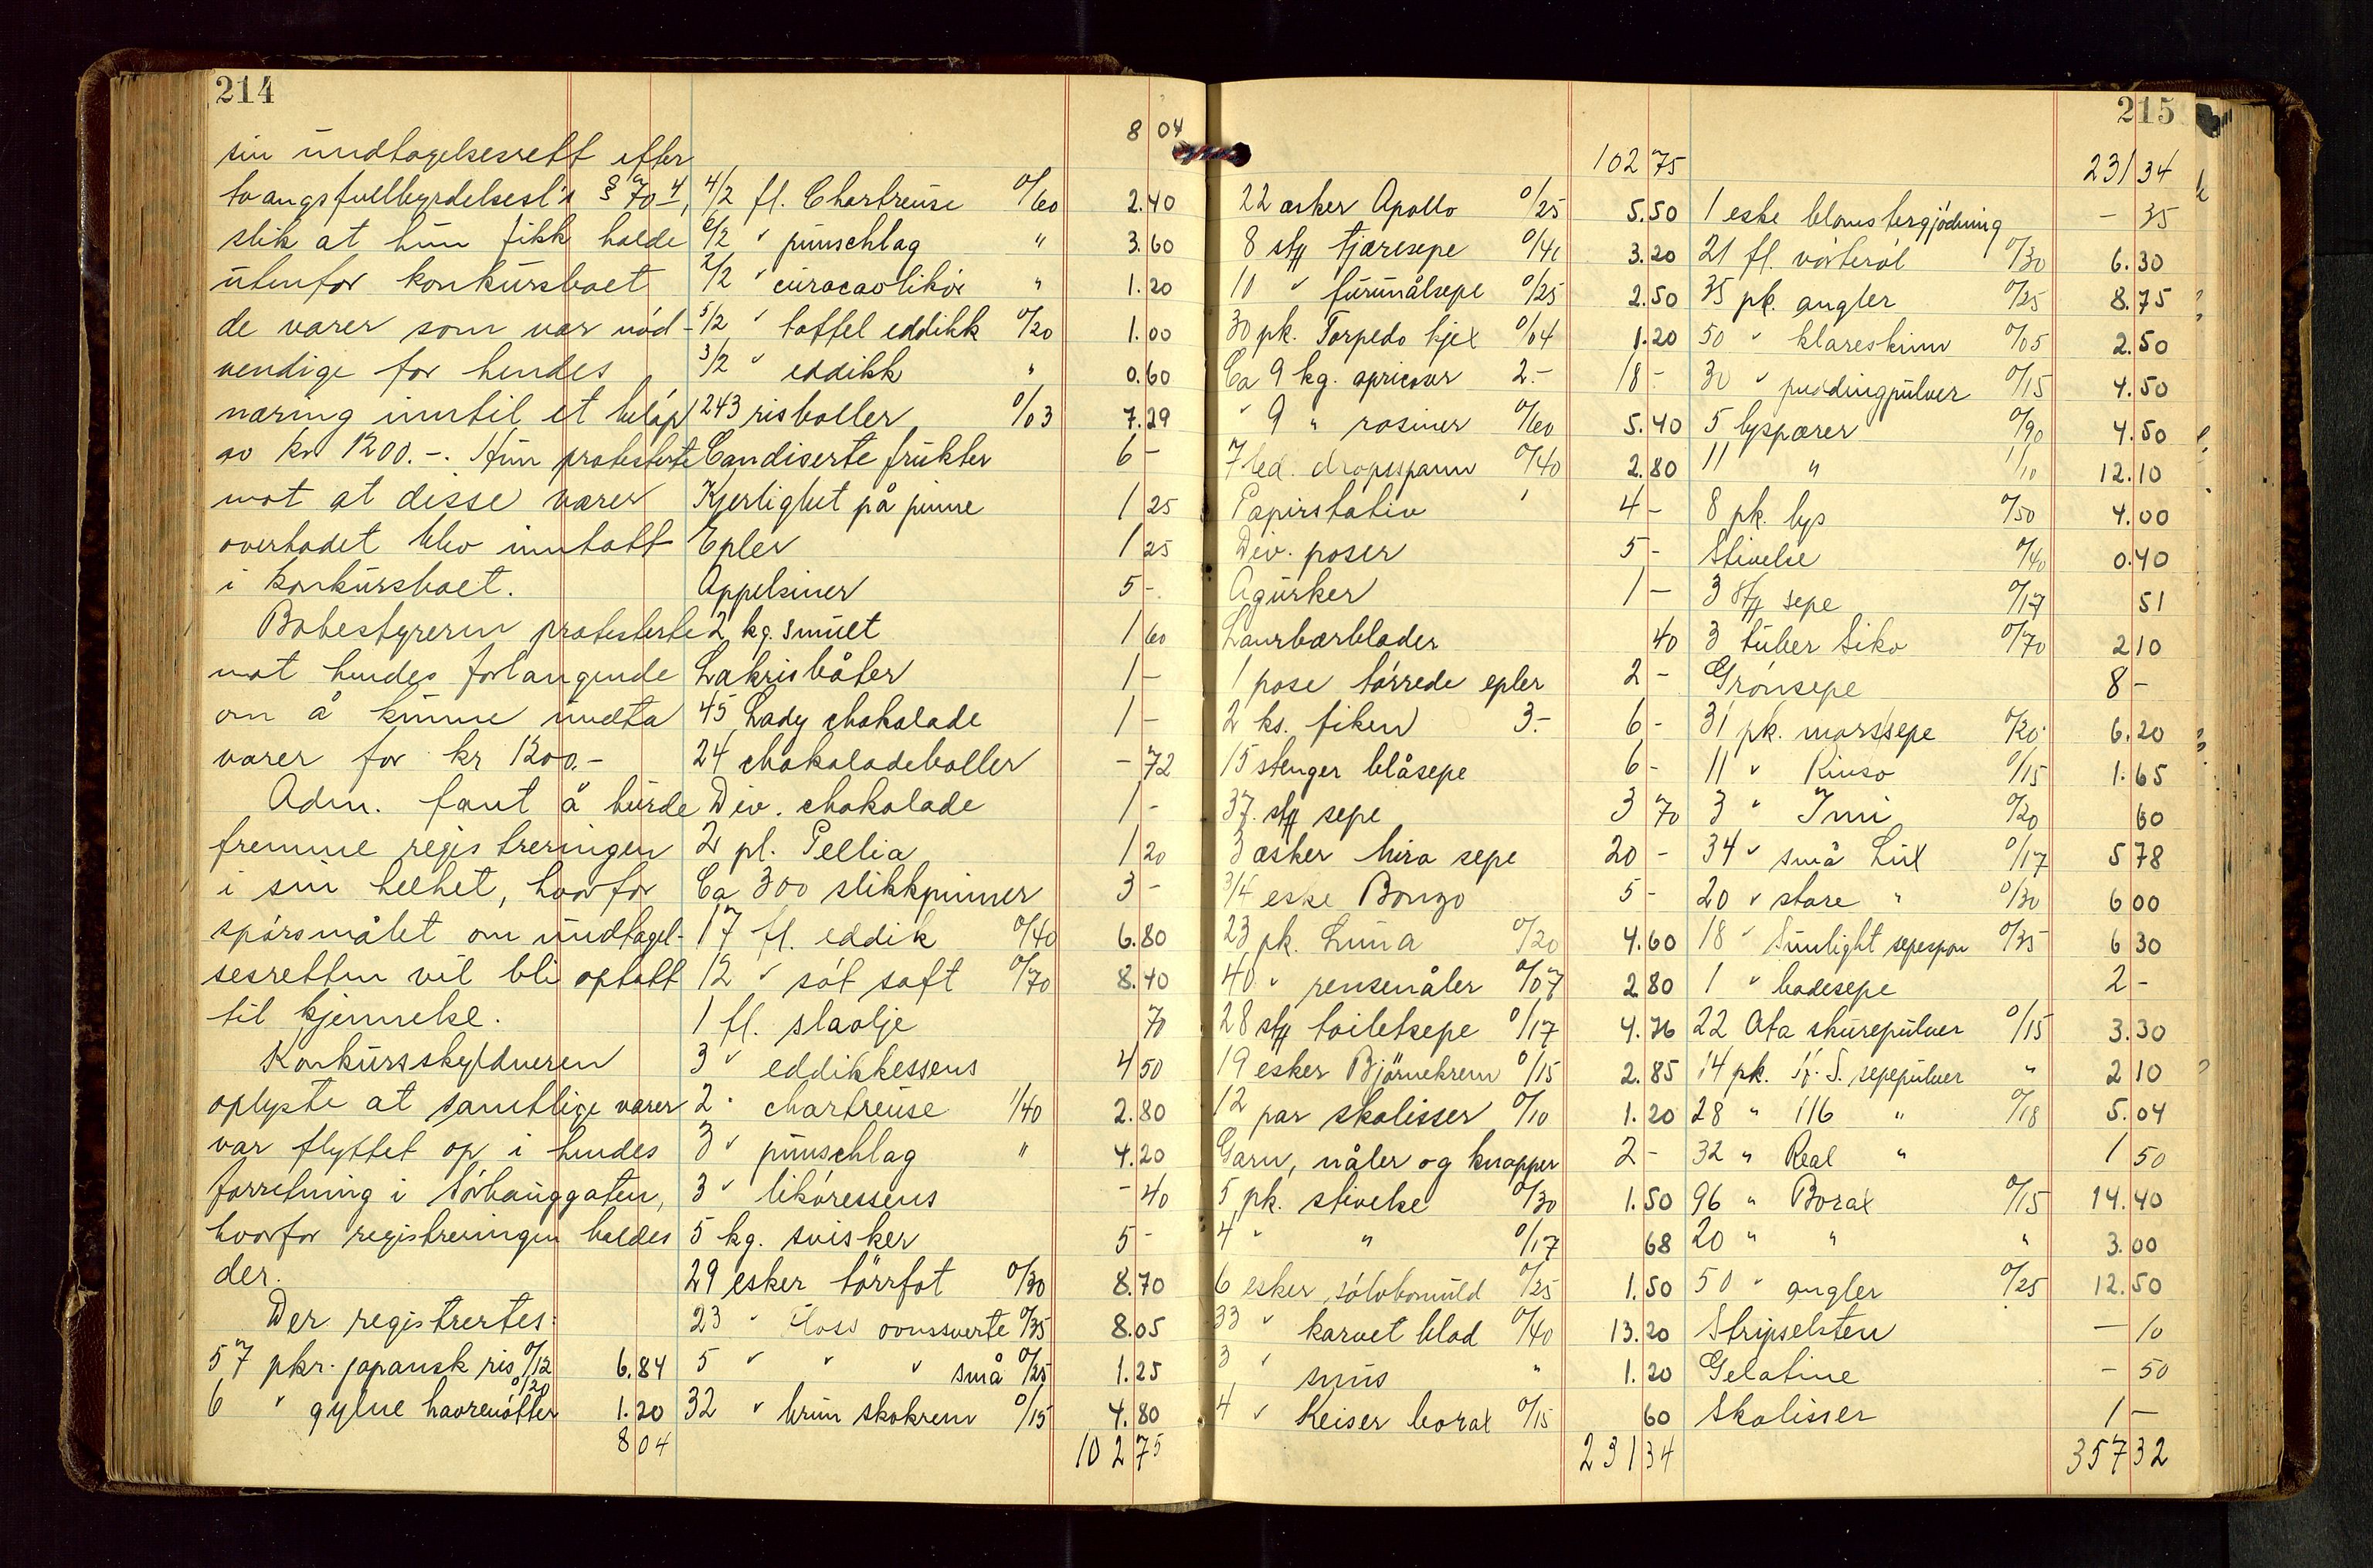 214
sin undtagelsesrett efter
tvangsfullbyrdelsesl's § 70 4,
slik at hun fikk holde
utenfor konkursboet
de varer som var nød-
vendige for hendes
næring inntil et beløp
av kr 1200.-. Hun protesterte
mot at disse varer
overhodet blev inntatt
i konkursboet.
Bobestyreren protesterte
mot hendes forlangende
om å kunne undta
varer for kr 1200.-
Adm. fant å burde
fremme registreringen
i sin helhet, hvorfor
spørsmålet om undtagel-
sesretten vil bli optatt
til kjennelse.
Konkursskyldneren
oplyste at samtlige varer
var flyttet op i hendes
forretning i Torhauggaten,
hvorfor registreringen holdes
der.
Der registrertes:
57 pkr. japansk ris 0/12 6.84
6 " gylne havrenøtter 0/20 1.20
8 04
8 04
4/2 fl. Chartreuse 0/60 2.40
6/2 " punschlag " 3.60
2/2 " curacaolikör " 1.20
5/2 " taffel eddikk 0/20 1.00
3/2 " eddikk " 0.60
243 risboller 0/03 7.29
Candiserte frukter 6 -
Kjerlighet på pinne 1 25
Epler 1 25
Appelsiner 5 -
2 kg. smult 1 60
Lakrisbåter 1 -
45 Lady chokolade 1 -
24 chokoladeboller - 72
Div. chokolade 1 -
2 pl. Pellia 1 20
Ca 300 slikkpinner 3 -
17 fl. eddik 0/40 6.80
12 " søt saft 0/70 8.40
1 fl. slaolje 70
3 " eddikkessens 4 50
2 " chartreuse 1/40 2.80
3 " punschlag " 4.20
3 " likøressens - 40
5 kg. svisker 5 -
29 esker törrfot 0/30 8.70
23 " ovnssverte 0/35 8.05
5 " " " små 0/25 1.25
32 " brun skokrem 0/15 4.80
102 75
215
102 75
22 æsker Apollo 0/25 5.50
8 stk tjæresepe 0/40 3.20
10 " furunålsepe 0/25 2.50
30 pk. Torpedo kjex 0/04 1.20
Ca 9 kg. apricoser 2.- 18 -
" 9 " rosiner 0/60 5.40
7 dropsspann 0/40 2.80
Papirstativ 4 -
Div. poser 5 -
Agurker 1 -
Laurbærblader 40
1 pose tørrede epler 2 -
2 ks. fiken 3.- 6 -
15 stenger blåsepe 6 -
37 stk sepe 3 70
3 æsker Mira sepe 20 -
3/4 eske Bonzo 5 -
23 pk. Luna 0/20 4.60
40 " rensenåler 0/07 2 80
28 stk toiletsepe 0/17 4.76
19 esker Björnekrem 0/15 2.85
12 par skolisser 0/10 1.20
Garn, nåler og knapper 2 -
5 pk. stivelse 0/30 1.50
4 " " 0/17 68
6 esker sølvbomuld 0/25 1.50
33 " karvet blad 0/40 13.20
3 " snus " 1.20
4 " Keiser borax 0/15 60
231 34
231 34
1 eske blomstergjødning - 35
21 fl. vørterøl 0/30 6.30
35 pk. angler 0/25 8.75
50 " klareskinn 0/05 2.50
30 " puddingpulver 0/15 4.50
5 lyspærer 0/90 4.50
11 " 1/10 12.10
8 pk. lys 0/50 4.00
Stivelse 0/40 0.40
3 stk sepe 0/17 51
3 tuber Siko 0/70 2 10
Grønsepe 8 -
31 pk. morssepe 0/20 6.20
11 " Rinso 0/15 1.65
3 " Imi 0/20 60
34 " små Lux 0/17 5 78
20 " store " 0/30 6 00
18 " Sunlight sepespon 0/35 6 30
1 " badesepe 2 -
22 Ata skurepulver 0/15 3.30
14 pk. sepepulver " 2 10
28 " 116 " 0/18 5.04
32 " Real " 1 50
96 " Borax 0/15 14.40
20 " " " 3.00
50 " angler 0/25 12.50
Stripselsten - 10
Gelatine - 50
Skolisser 1 -
357 32